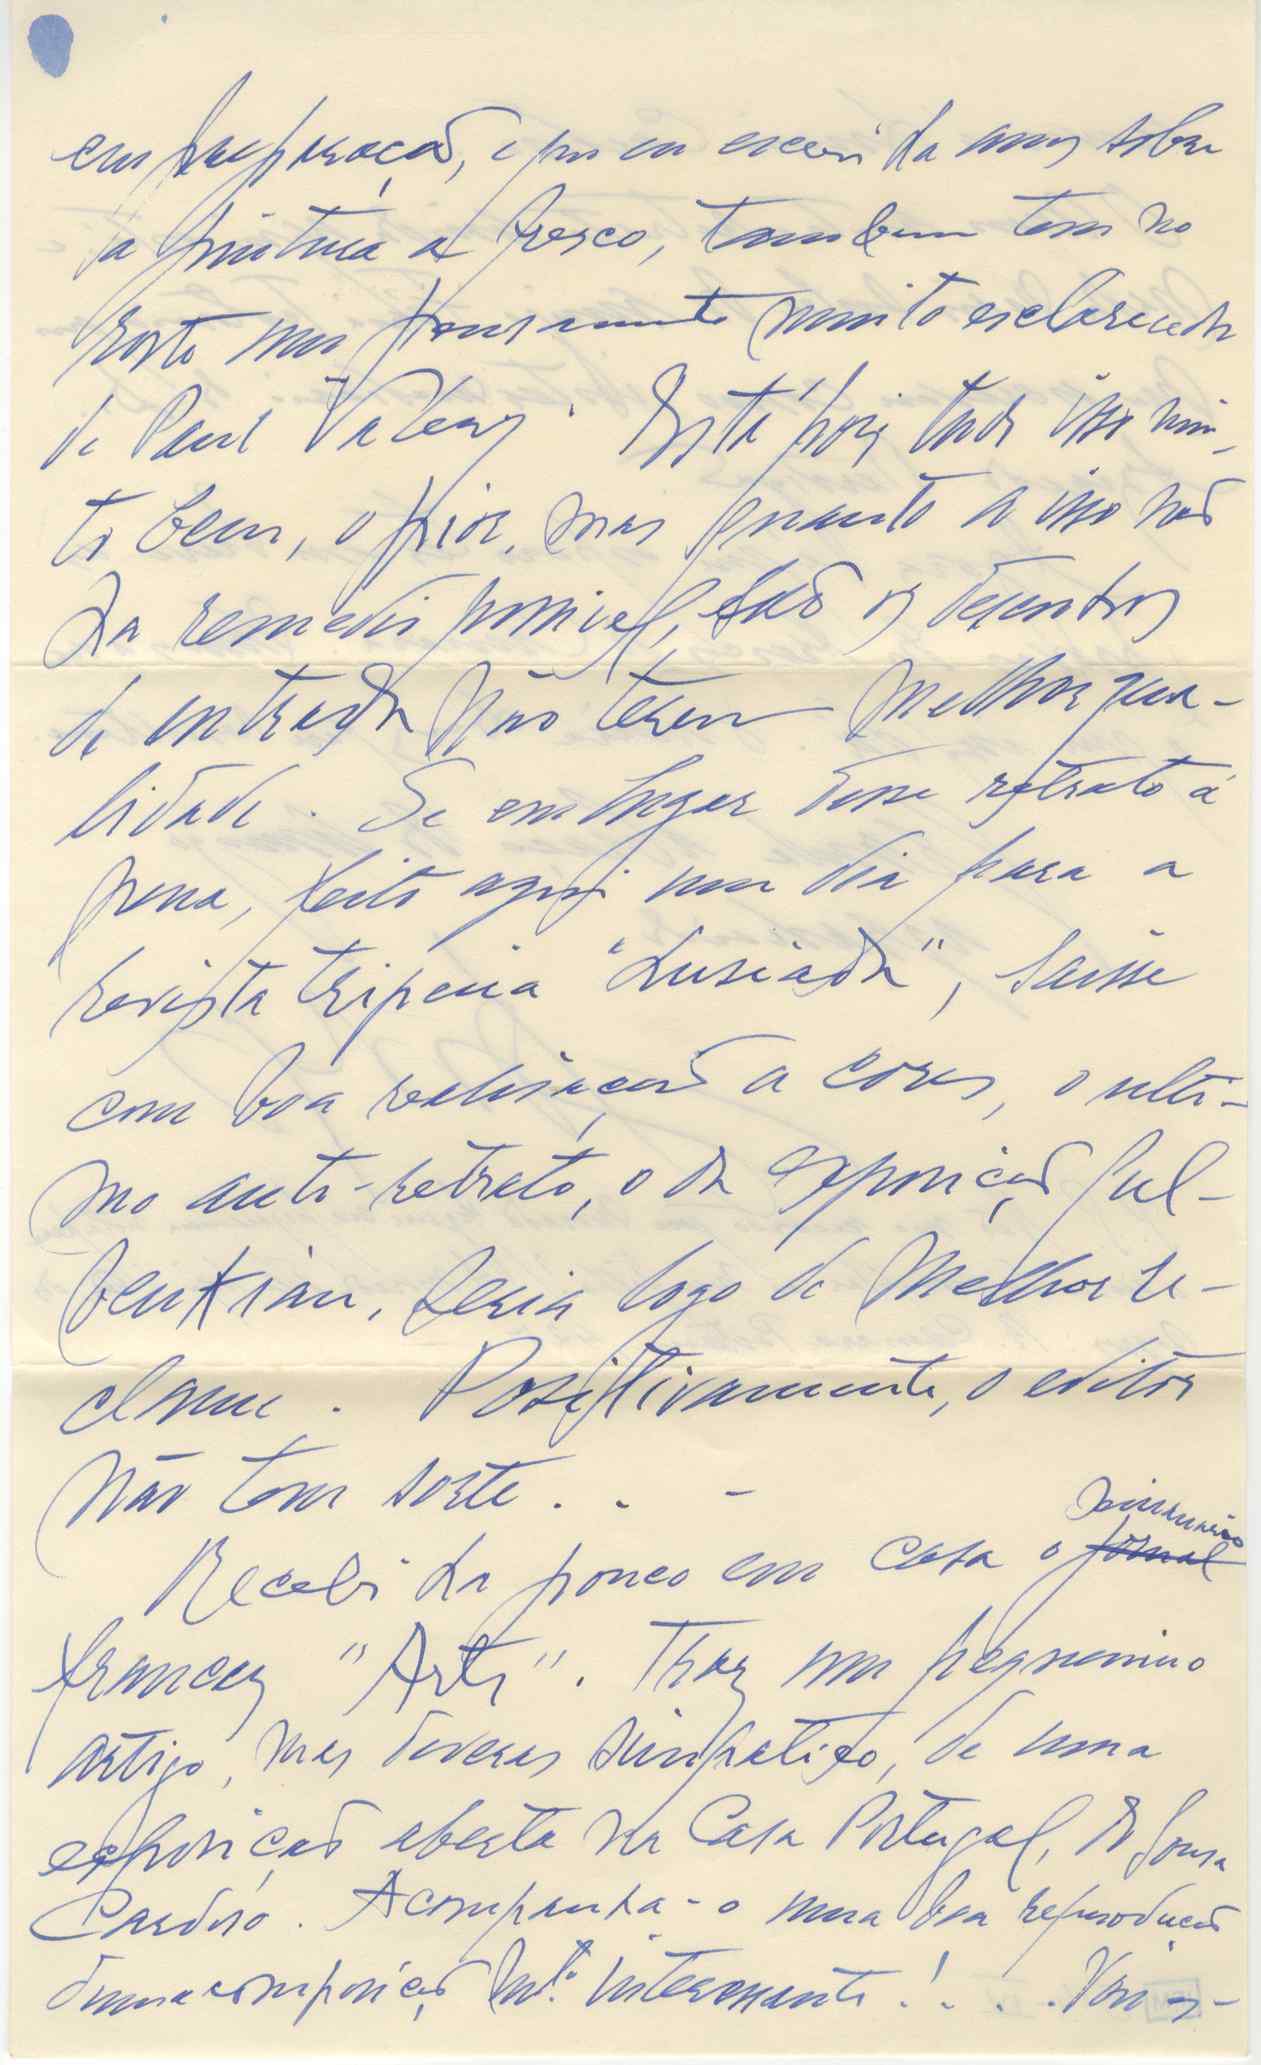 em preparação, e que eu escrevi ha anos sobre
a pintura a fresco, tambem tem no
rosto um pensamento muito esclarecedor
de Paul Valery. Está pois tudo isso mui-
to bem, o pior, mas quanto a isso não
ha remedio possivel, são os desenhos
de entrada não terem melhor qua-
lidade. Se em lugar desse retrato á
pena, feito aqui um dia para a
revista tripeira "Lusiada", saisse
com boa realisação a cores, o ulti-
mo auto-retrato, o da exposição Gul-
benkian, seria logo de melhor re-
clame. Positivamente, o editor
não tem sorte . . -
Recebi ha pouco em casa o semanario
francez "Arts". Traz um pequenino
artigo, mas deveras simpatico, de uma
exposição aberta na Casa Portugal, do Sousa
Cardoso. Acompanha-o uma boa reprodução
duma composição mto. interessante! . . . Vou-